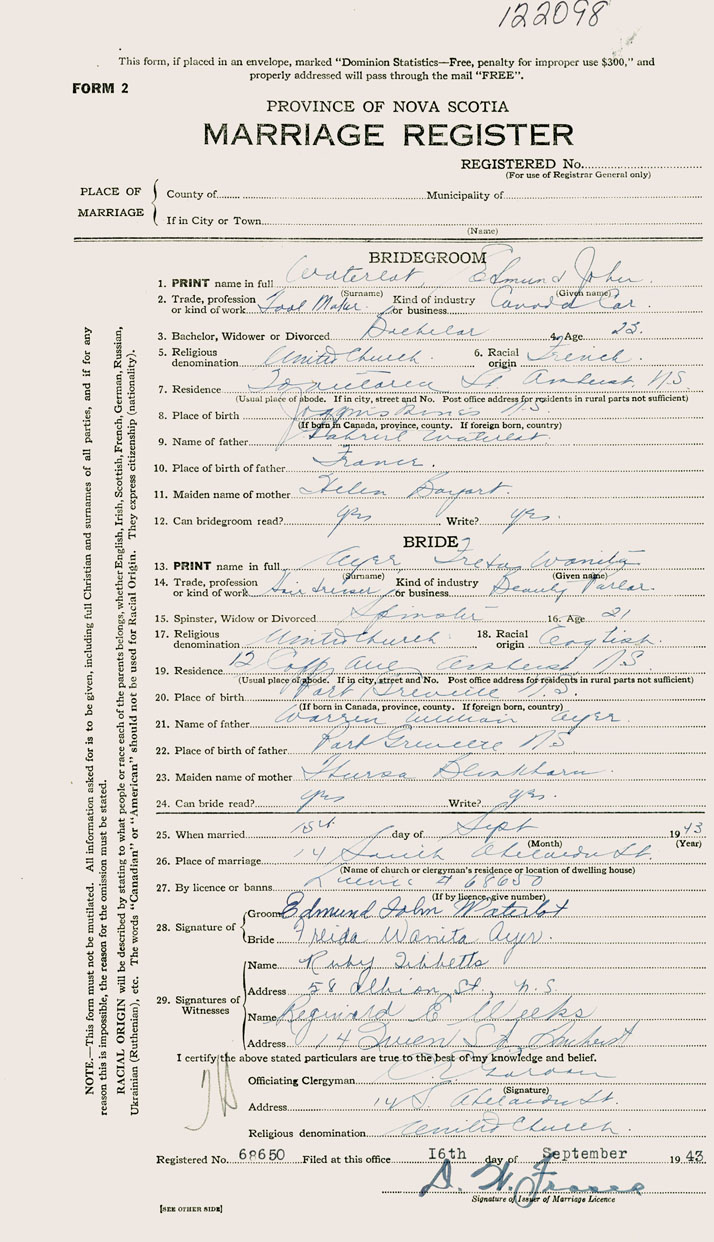 122098
This form, if placed in an envelope, marked "Dominion Statistics—Free, penalty for improper use $300," and
properly addressed will pass through the mail "FREE".
FORM 2
PROVINCE OF NOVA SCOTIA
MARRIAGE REGISTER
REGISTERED No.
(For use of Registrar General only)
PLACE OF MARRIAGE
County of Municipality of
If in City or Town
(Name)
BRIDEGROOM
1. PRINT name in full Waterlot, Edmund John
(Surname) (Given name)
2. Trade, profession or kind of work Tool Maker. Kind of industry or business Canada Car.
3. Bachelor, Widower or Divorced Bachelor 4. Age 23.
5. Religious denomination United Church. 6. Racial origin French.
7. Residence St. Amherst, N.S.
(Usual place of abode. If in city, street and No. Post office address for residents in rural parts not sufficient)
8. Place of birth Joggins Mines N.S.
(If born in Canada, province, county. If foreign born, country)
9. Name of father Gabriel Waterlot.
10. Place of birth of father France.
11. Maiden name of mother Helen
12. Can bridegroom read? yes Write? yes.
BRIDE
13. PRINT name in full Ayer Freda Wanita
(Surname) (Given name)
14. Trade, profession or kind of work Hair dresser Kind of industry or business Beauty Parlor.
15. Spinster, Widow or Divorced Spinster 16. Age 21
17. Religious denomination United Church. 18. Racial origin English.
19. Residence 12 Copp Ave, Amherst N.S.
(Usual place of abode. If in city, street and No. Post office address for residents in rural parts not sufficient)
20. Place of birth Port Greville N.S.
(If born in Canada, province, county. If foreign born, country)
21. Name of father Warren Ayer.
22. Place of birth of father Port Greville N.S
23. Maiden name of mother Blinkhorn.
24. Can bride read? yes Write? yes.
25. When married day of Sept 1943
(Month) (Year)
26. Place of marriage 14 South Adelaide St.
(Name of church or clergyman's residence or location of dwelling house)
27. By licence or banns. License # 68650
(If by licence, give number)
28. Signature of
Groom Edmund John Waterlot
Bride Freida Wanita Ayer.
29. Signatures of Witnesses
Name Ruby Tibbetts
Address 58 Albion St., N.S.
Name Reginald E Weeks
Address 14 Queen St. Amherst
I certify the above stated particulars are true to the best of my knowledge and belief.
Officiating Clergyman
(Signature)
Address 14 S. Adelaide St.
Religious denomination United Church.
Registered No. 68650 Filed at this office I6th day of September 1943
Signature of Issuer of Marriage Licence
[SEE OTHER SIDE]
NOTE.—This form must not be mutilated. All information asked for is to be given, including full Christian and surnames of all parties, and if for any
reason this is impossible, the reason for the omission must be stated.
RACIAL ORIGIN will be described by stating to what people or race each of the parents belongs, whether English, Irish, Scottish, French, German, Russian,
Ukrainian (Ruthenian), etc. The words "Canadian" or "American" should not be used for Racial Origin. They express citizenship (nationality).